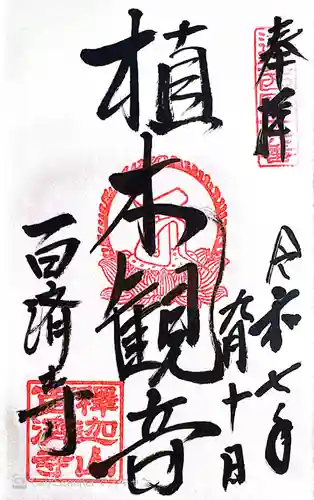 奉拝
令和七年
九月十日
植木観音
百済寺
釋迦山
百済寺